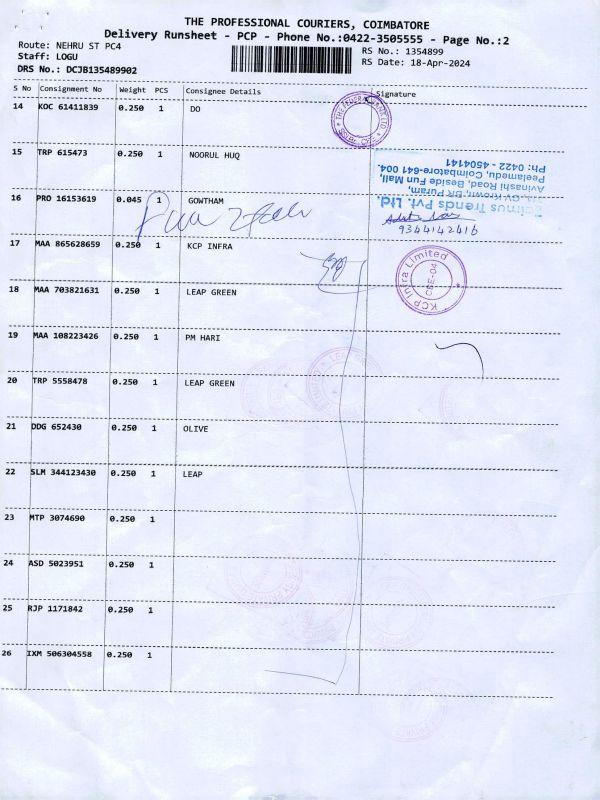 THE PROFESSIONAL COURIERS, COIMBATORE
Delivery Runsheet - PCP - Phone No.:0422-3505555 - Page No.:2
Route: NEHRU ST PC4
Staff: LOGU
DRS No.: DCJB135489902
RS No.: 1354899
RS Date: 18-Apr-2024
S No Consignment No Weight PCS Consignee Details Signature
14 KOC 61411839 0.250 1 DO
15 TRP 615473 0.250 1 NOORUL HUQ
Ph: 0422 - 4504141
Peelamedu, Coimbatore-641 004.
Avinashi Road, Beside Fun Mall,
Trends Pvt. Ltd.
16 PRO 16153619 0.045 1 GOWTHAM
9344142416
17 MAA 865628659 0.250 1 KCP INFRA
KCP Infra Limited
CBE-04
18 MAA 703821631 0.250 1 LEAP GREEN
19 MAA 108223426 0.250 1 PM HARI
20 TRP 5558478 0.250 1 LEAP GREEN
21 DDG 652430 0.250 1 OLIVE
22 SLM 344123430 0.250 1 LEAP
23 MTP 3074690 0.250 1
24 ASD 5023951 0.250 1
25 RJP 1171842 0.250 1
26 IXM 506304558 0.250 1